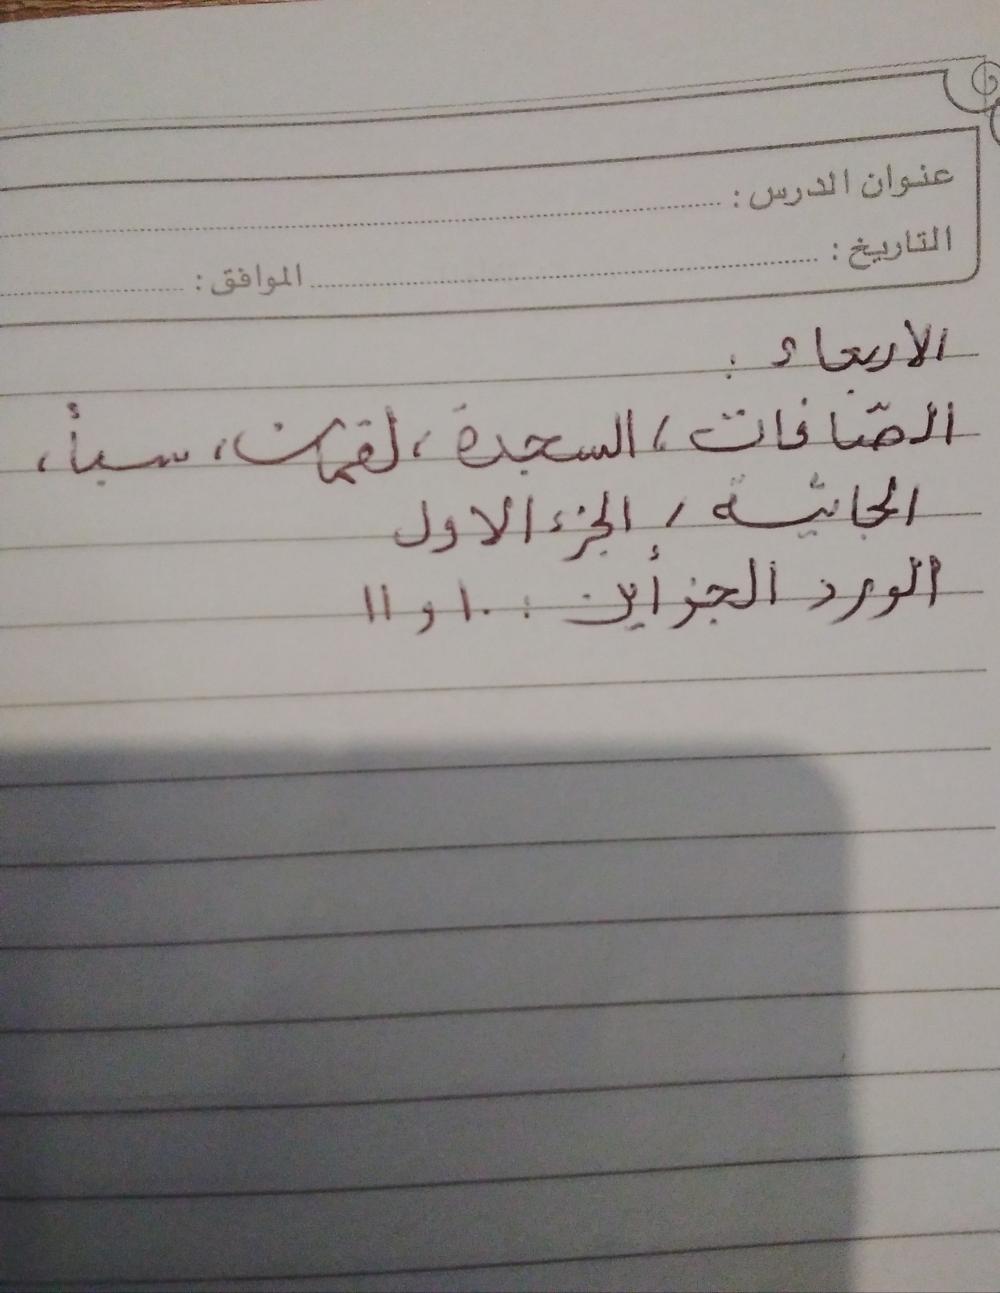 عنوان الدرس :
التاريخ : الموافق :
الاربعاء :
الصّافات ، السجدة ، لقمان ، سبأ ،
الجاثية ، الجزء الاول
الورد الجزأين : ١٠ و ١١